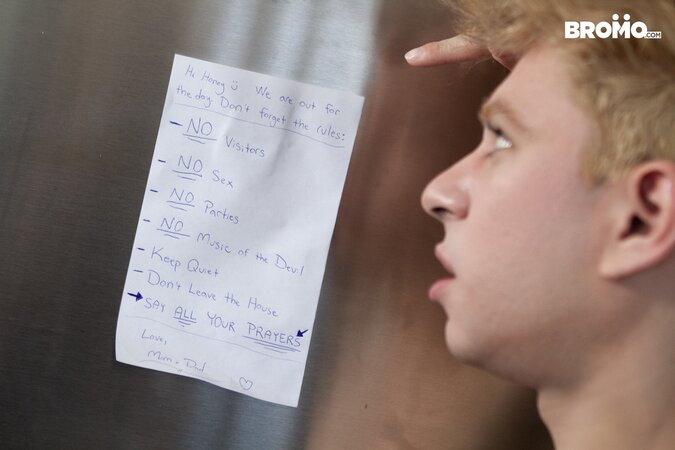 BROMO.COM
Hi Honey We are out for
the day. Don't forget the rules:
- NO Visitors
- NO Sex
- NO Parties
- NO Music of the Devil
- Keep Quiet
- Don't Leave the House
→ SAY ALL YOUR PRAYERS
Love,
Mom + Dad